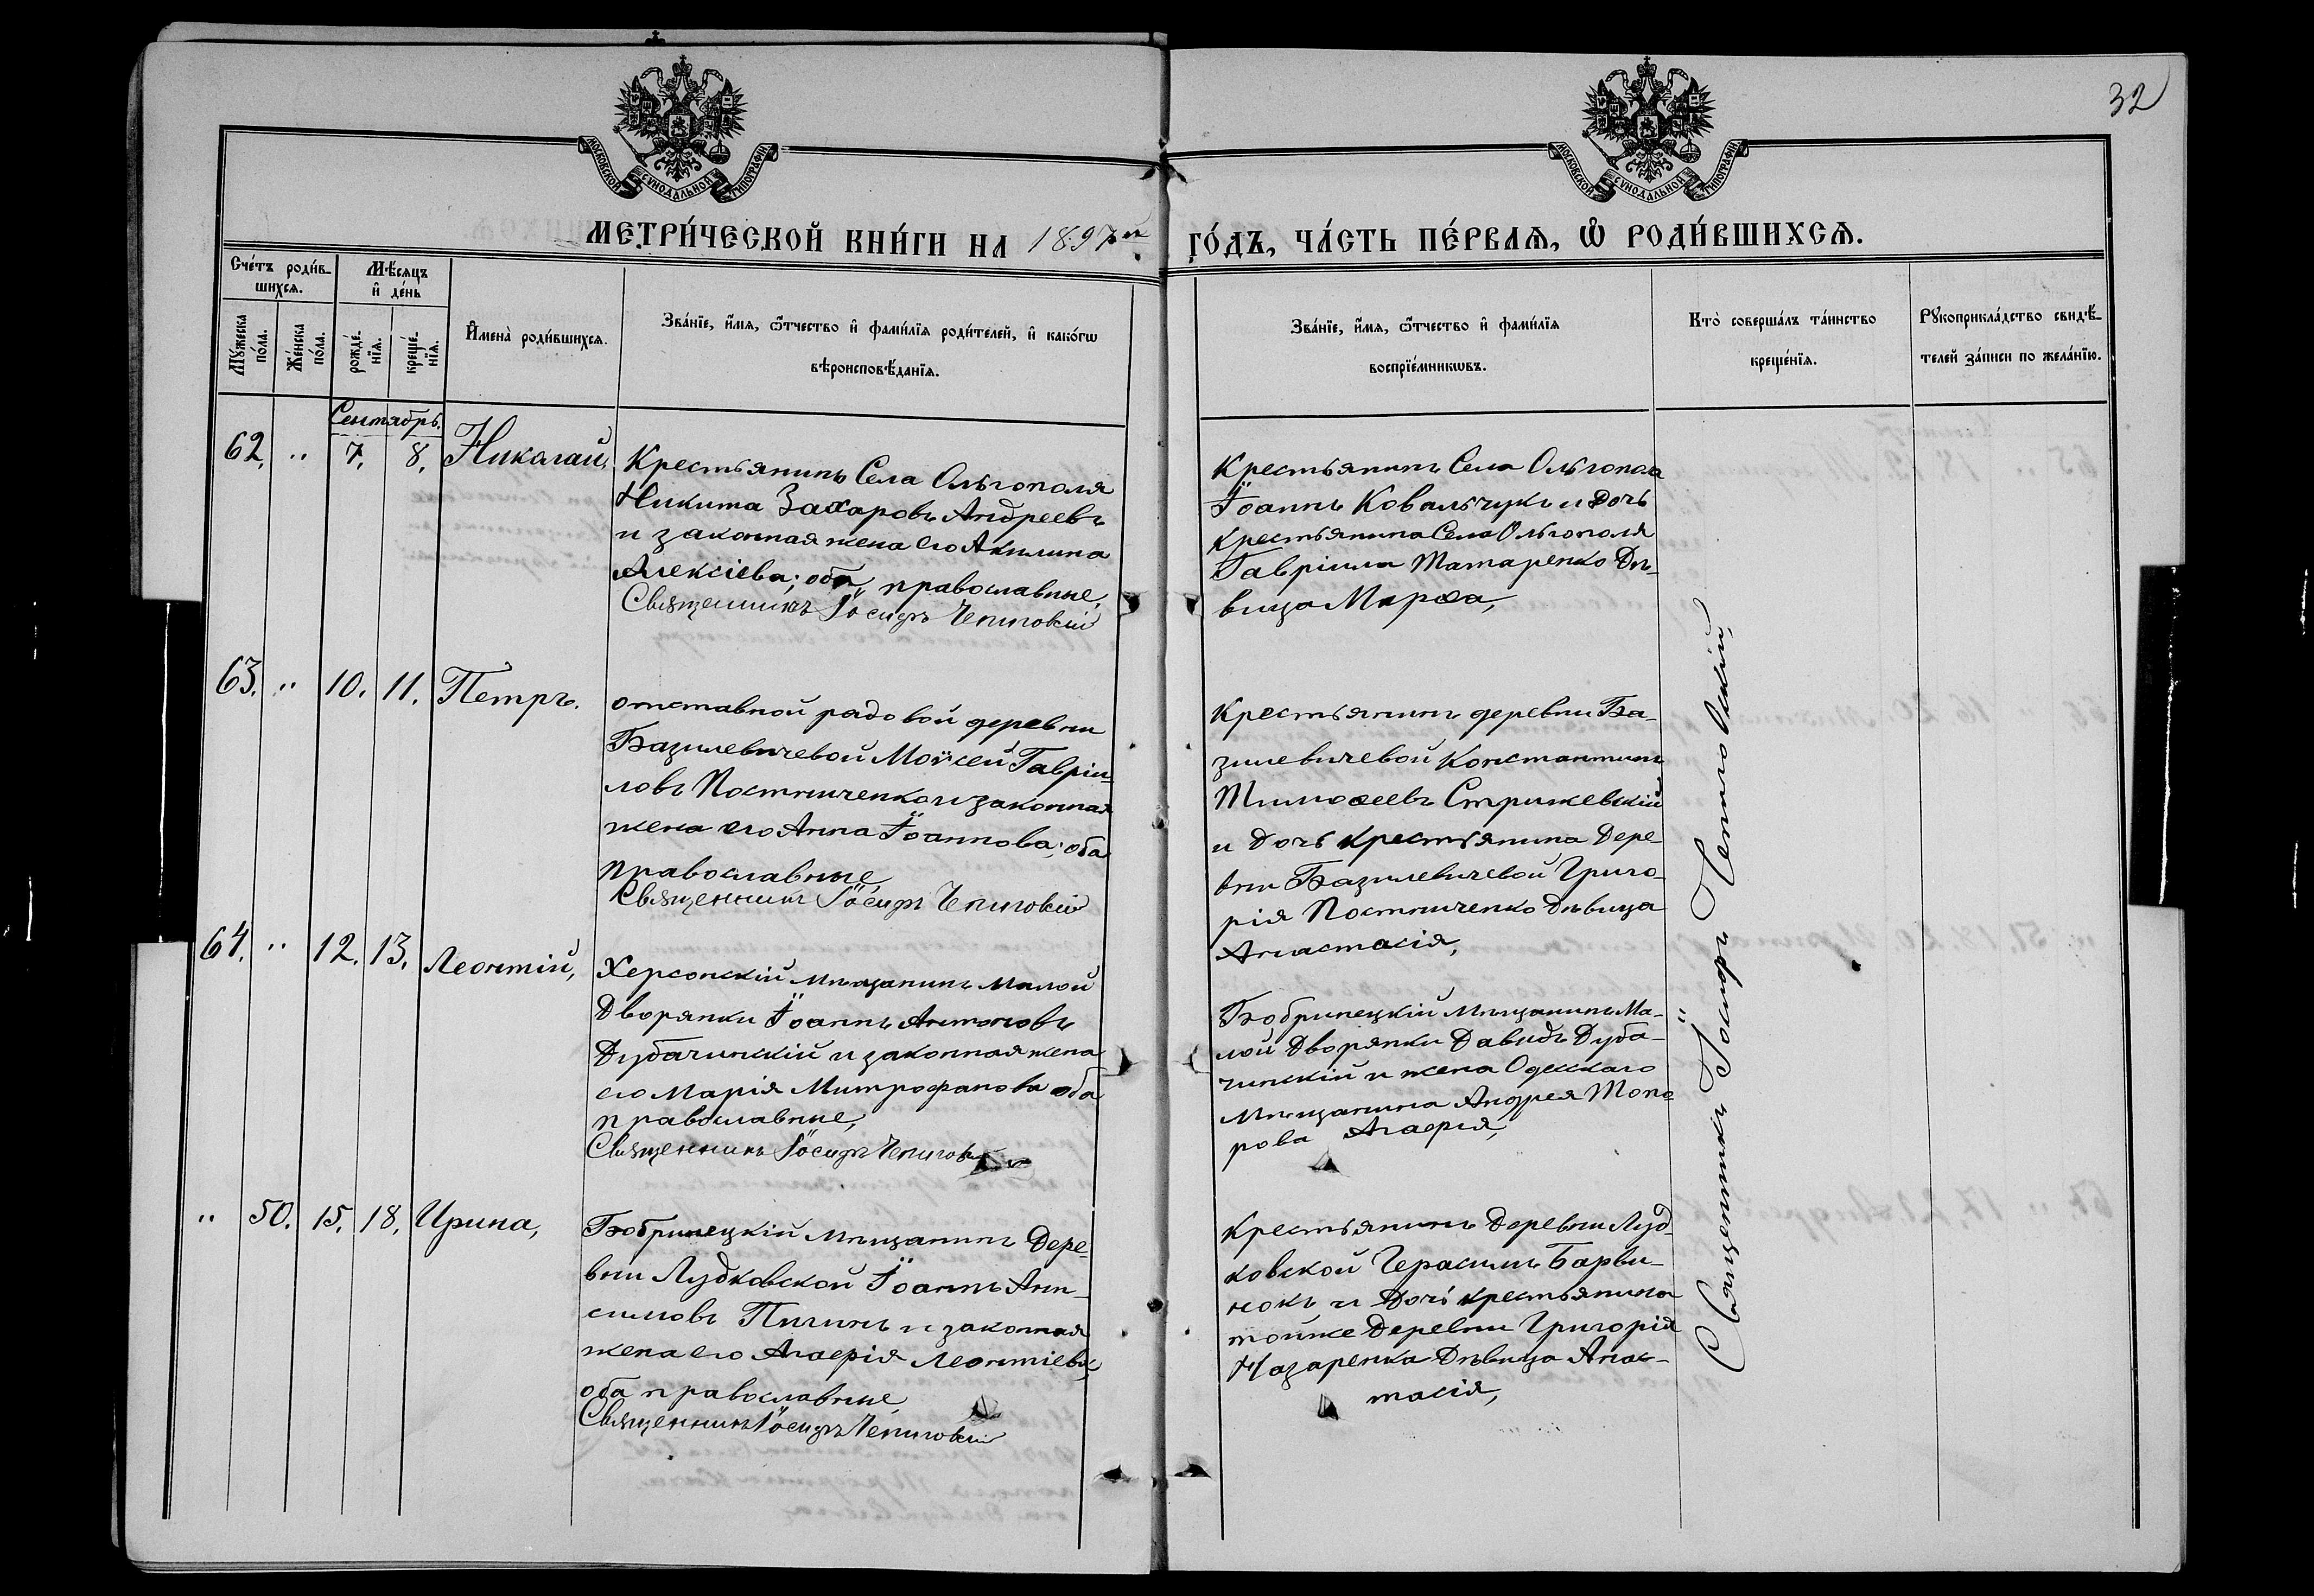 32
МОСКОВСКОЙ СѴНОДАЛЬНОЙ ТИПОГРАФІИ
МОСКОВСКОЙ СѴНОДАЛЬНОЙ ТИПОГРАФІИ
МЕТРИ́ЧЕСКОЙ КНИ́ГИ НА 1897й ГО́ДЪ, ЧА́СТЬ ПЕ́РВАѦ, Ѡ҆ РОДИ́ВШИХСѦ.
Сче́тъ роди́в-
шихсѧ.
Мѣ́сяцъ
и҆ де́нь
Мꙋ́жеска
по́ла.
Же́нска
по́ла.
рожде́-
нїѧ.
креще́-
нїѧ.
И҆мена̀ роди́вшихсѧ.
Зва́нїе, и҆́мѧ, ѻ҆́тчество и҆ фами́лїѧ роди́телей, и҆ како́гѡ
вѣроисповѣ́данїѧ.
Зва́нїе, и҆́мѧ, ѻ҆́тчество и҆ фами́лїѧ
воспрїе́мникѡвъ.
Кто̀ соверша́лъ та́инство
креще́нїѧ.
Рꙋкоприкла́дство свидѣ́-
телей за́писи по жела́нїю.
Сентябрь.
62. " 7. 8. Николай,
Крестьянинъ Села Ольгополя
Никита Захаровъ Андреевъ
и законная жена его Акилина
Алексіева; оба православные,
Священникъ Іосифъ Чепиговскій
Крестьянинъ Села Ольгополя
Іоаннъ Ковальчукъ и дочь
крестьянина Села Ольгополя
Гавріила Татаренко Дѣ-
вица Марѳа,
63. " 10. 11. Петръ.
отставной рядовой деревни
Базилевичевой Моѵсей Гавріи-
ловъ Постниченко и законная
жена его Анна Іоаннова; оба
православные
Священникъ Іосифъ Чепиговскій
Крестьянинъ деревни Ба-
зилевичевой Константинъ
Тимоѳеевъ Стрижевскій
и дочь крестьянина Дере
вни Базилевичевой Григо-
рія Постниченко Дѣвица
Анастасія,
64. " 12. 13. Леонтій,
Херсонскій мѣщанинъ Малой
Дворянки Іоаннъ Антоновъ
Дубачинскій и законная жена
его Марія Митрофанова оба
православные,
Священникъ Іосифъ Чепиговскій
Бобринецкій мѣщанинъ Ма-
лой Дворянки Давидъ Дуба-
чинскій и жена Одесскаго
мѣщанина Андрея Топо
рова Агаѳія,
" 50. 15. 18. Ирина,
Бобринецкій мѣщанинъ Дере-
вни Лудковской Іоаннъ Ани-
симовъ Пигинъ и законная
жена его Агаѳія Леонтіева,
оба православные
Священникъ Іосифъ Чепиговскій
Крестьянинъ Деревни Луд-
ковской Герасимъ Барви-
нокъ и дочь крестьянина
тойже Деревни Григорія
Назаренка Дѣвица Анас-
тасія,
Священникъ Іосифъ Чепиговскій,